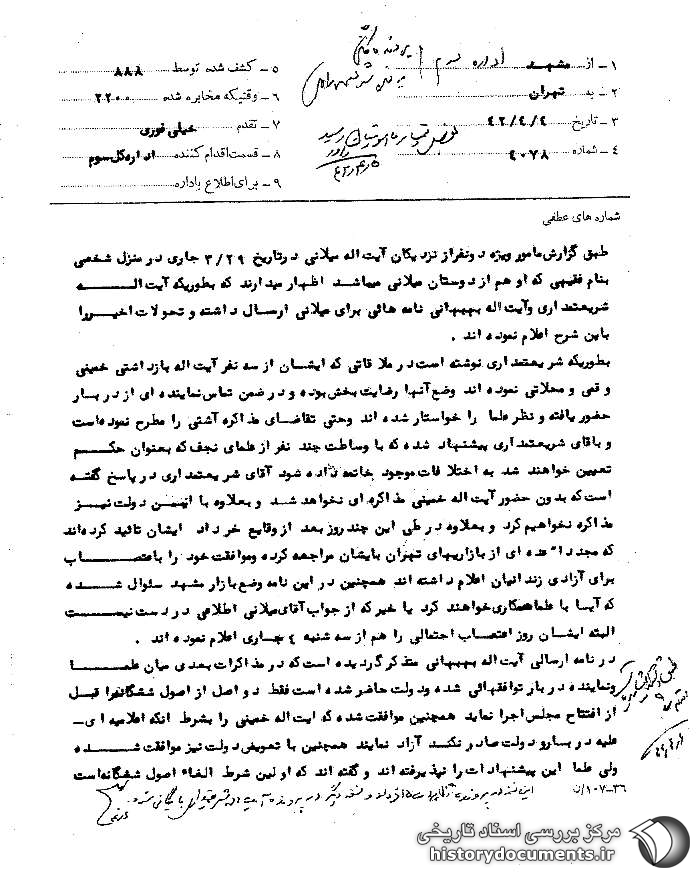 ۱ ـ از مشهد
۲ ـ به تهران
۳ ـ تاریخ ۴۲/۴/۴
۴ ـ شماره ۴۰۷۸
اداره سوم
۵ ـ کشف شده توسط ۸۸۸
۶ ـ وقتیکه مخابره شده ۲۲۰۰
۷ ـ تقدم خیلی فوری
۸ ـ قسمت اقدام کننده اداره کل سوم
۹ ـ برای اطلاع باداره
شماره های عطفی
طبق گزارش مامور ویژه دونفر از نزدیکان آیت اله میلانی در تاریخ ۳/۲۹ جاری در منزل شخصی
بنام فقیهی که او هم از دوستان میلانی میباشد اظهار میدارند که بطوریکه آیت الــه
شریعتمداری و آیت اله بهبهانی نامه هائی برای میلانی ارسال داشته و تحولات اخیر را
باین شرح اعلام نموده اند .
بطوریکه شریعتمداری نوشته است در ملاقاتی که ایشان از سه نفر آیت اله بازداشتی خمینی
و قمی و محلاتی نموده اند وضع آنها رضایت بخش بوده و در ضمن تماس نماینده ای از دربار
حضور یافته و نظر علما را خواستار شده اند وحتی تقاضای مذاکره آشتی را مطرح نموده است
و باقای شریعتمداری پیشنهاد شده که با وساطت چند نفر از علمای نجف که بعنوان حکــم
تعیین خواهند شد به اختلافات موجود خاتمه داده شود آقای شریعتمداری در پاسخ گفتـه
است که بدون حضور آیت اله خمینی مذاکره ای نخواهد شد و بعلاوه با ایــن دولت نیــز
مذاکره نخواهیم کرد و بعلاوه در طی این چند روز بعد از وقایع خرداد ایشان تائید کرده اند
که مجددا" عده ای از بازاریهای تهران بایشان مراجعه کرده وموافقت خود را باعتصــاب
برای آزادی زندانیان اعلام داشته اند همچنین در این نامه وضع بازار مشهد سئوال شــده
که آیــا با علما همکاری خواهند کرد یا خیر که از جواب آقای میلانی اطلاعی در دست نیســت
البته ایشان روز اعتصاب احتمالی را هم از سه شنبه ۴ جاری اعلام نموده اند .
در نامه ارسالی آیت اله بهبهانی متذکر گردیده است که در مذاکرات بعدی میان علمــا
ونماینده دربار توافقهائی شده ودولت حاضر شده است فقط دو اصل از اصول ششگانه را قبل
از افتتاح مجلس اجرا نماید همچنین موافقت شده که ایت اله خمینی را بشرط انکه اعلامیه ای ـ
علیه دربار و دولت صادر نکند آزاد نمایند همچنین با تعویض دولت نیز موافقت شـــده
ولی علما این پیشنهادات را نپذیرفته اند و گفته اند که اولین شرط الغاء اصول ششگانه است
۳۶-۱۰۷/ن
مرکز بررسی اسناد تاریخی
historydocuments.ir